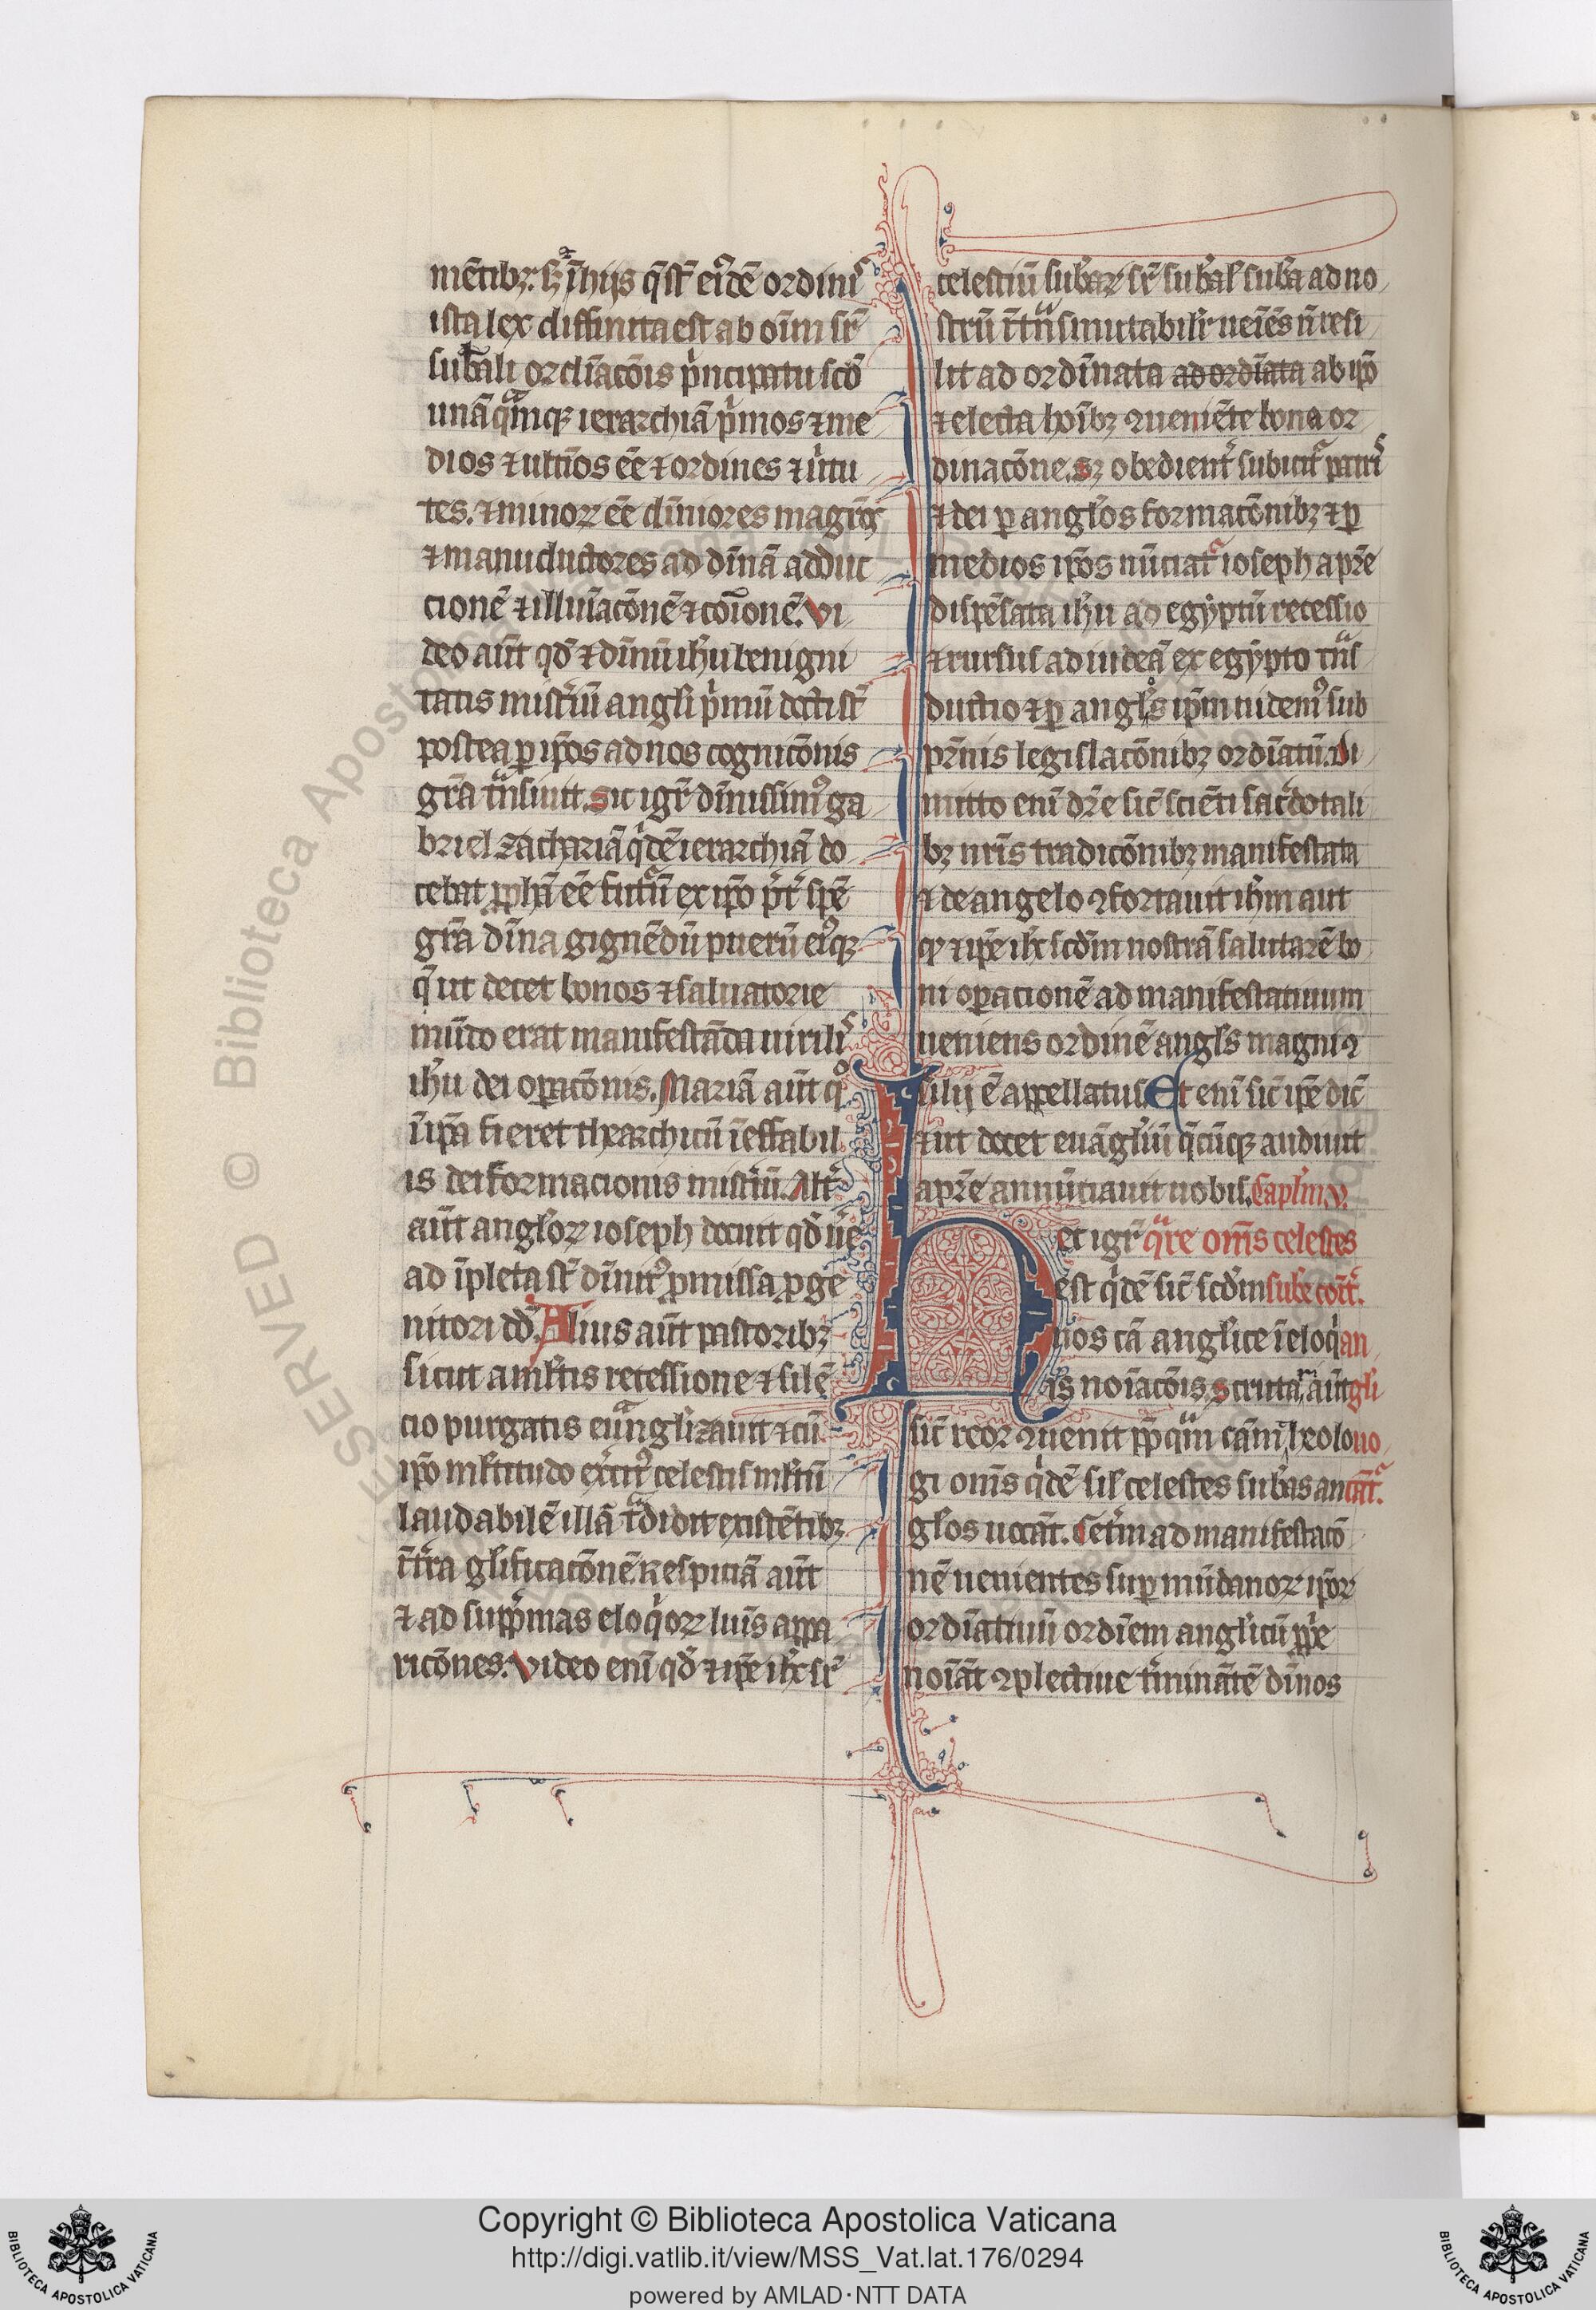 mētibȝ. sȝ ī hijs q̄ st̄ ei9dē ordinis
ista lex diffinita est ab oīm sr̄
sub̄ali ordīacōis p̲ncipatu scd̄
unāquāqȝ ierarchiā p̲mos ⁊ me
dios ⁊ ultīos eē ⁊ ordines ⁊ u̇tu
tes. ⁊ minorꝝ eē diuīiores magr̄os
⁊ manuductores ad diuinā adduc
cionē ⁊ illuīacōnē ⁊ cōīonē. Vi
deo aūt qd̄ ⁊ diuīnū ih̄u benigni
tatis mist̄iū angl̄i p̲mū docti st̄
postea ꝑ ip̄os ad nos cognicōnis
gr̄a tͣnsiuit. Sic igr̄ diuīnissim9 ga
briel zachariā q̇dē ierarchiā do
cebat ꝓph̄ā eē futuͣ ex ip̄o p̄t̄ spē
gr̄a diuīna gignēdū puerū ei9qȝ
q̄ ut decet bonos ⁊ saluatorie
mūdo erat manifestāda uirilis
ih̄u dei oꝑacōnis. Mariā aūt qͦ
ī ip̄a fieret thearchicū īeffabil
is deiformacionis mist̄iū. Alt̄
aūt angl̄orꝝ ioseph docuit qd̄ ue̲
ad īpleta st̄ diuīnit9 ꝓmissa ꝓge
nitori dd̄. Alius aūt pastoribȝ
sicut a ml̄tis recessione ⁊ silē
cio purgatis euāngl̄izauit ⁊ cū
ip̄o ml̄titudo exercit9 celestis ml̄tū
laudabilē illā tͣdidit existētibȝ
ī t̄ra gl̄ificacōnē. Respiciā aūt
⁊ ad supp̄mas eloq̇orꝝ luīs appa
ricōnes. Video enī qd̄ ⁊ ip̄e ih̄c sr̄
celestiū sub̄arꝝ sr̄ sub̄al̄ sub̄a ad no
strū ītͣnsmutabilr̄ ueiēs n̄ resi
lit ad ordīnata ad ordīata ab ip̄o
⁊ electa hoībȝ ꝯueniēte bona or
dinacōne. Sȝ obedient̄ subicit̄ patris
⁊ dei ꝑ angl̄os formacōnibȝ ⁊ ꝑ
medios ip̄os nūciat̄ ioseph a pr̄e
dispēsata ih̄u ad egyptū recessio
⁊ rursus ad iudeā ex egypto tͣns
ductio ⁊ ꝑ angl̄os ip̄m uidem9 sub
pr̄nis legislacōnibȝ ordīatū. Di
mitto enī dr̄e sic̄ sciēti sac̄dotali
bȝ nr̄is tradicōnibȝ manifestata
⁊ de angelo ꝯfortauit ih̄m aut
qꝛ ⁊ ip̄e ih̄c scd̄m nostrā salutarē bo
ni oꝑacionē ad manifestatiuum
ueniens ordinē angl̄s magni ꝯ
silij ē appellatus. Et enī sic̄ ip̄e dic̄
⁊ ut decet euāgl̄iū q̄cūqȝ audiuit
a pr̄e annūciauit nobis. Capl̄m. v.
et igr̄ qͣre om̄s celestes
est q̇dē sic̄ scd̄m sub̄e cōt̄.
nos cā angl̄ice ī eloq̇ an
is noīacōis. Scrutari aūt gl̄i
sic̄ reor ꝯuenit ꝓp̄ qͣm cām theolo uo
gi om̄s q̇dē sil̄ celestes sub̄as an cāt̄.
gl̄os uocāt. Cet̄m ad manifestacō
nē uenientes suꝑmūdanorꝝ ip̄orꝝ
ordīatiuū ordīem angl̄icū ꝓp̄e
noīāt ꝯplectiue t̄minātē diuīnos
RESERVED © Biblioteca Apostolica Vaticana
Copyright © Biblioteca Apostolica Vaticana
http://digi.vatlib.it/view/MSS_Vat.lat.176/0294
powered by AMLAD·NTT DATA
BIBLIOTECA APOSTOLICA VATICANA
BIBLIOTECA APOSTOLICA VATICANA